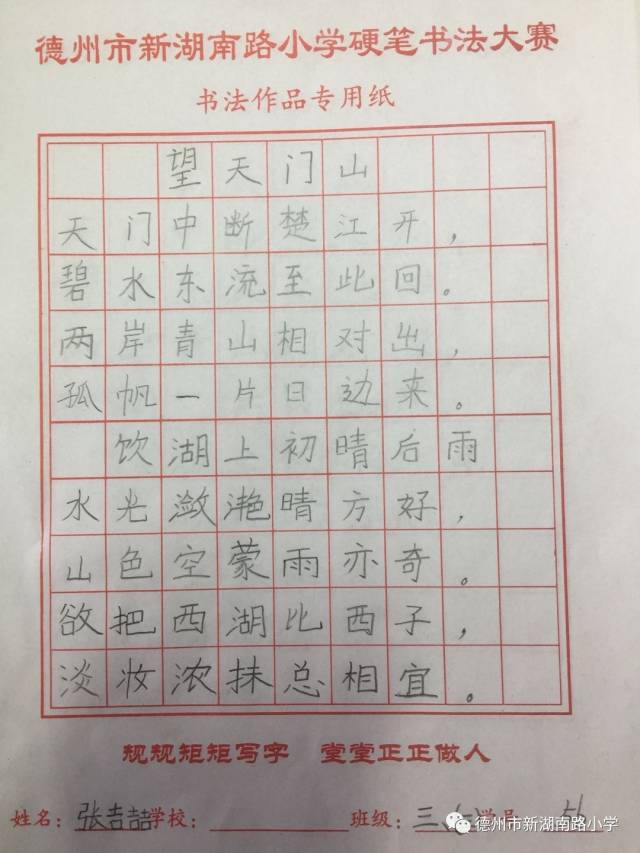 德州市新湖南路小学硬笔书法大赛
书法作品专用纸
望天门山
天门中断楚江开，
碧水东流至此回。
两岸青山相对出，
孤帆一片日边来。
饮湖上初晴后雨
水光潋滟晴方好，
山色空蒙雨亦奇。
欲把西湖比西子，
淡妆浓抹总相宜。
规规矩矩写字 堂堂正正做人
姓名：张吉喆学校： 班级：三、
德州市新湖南路小学